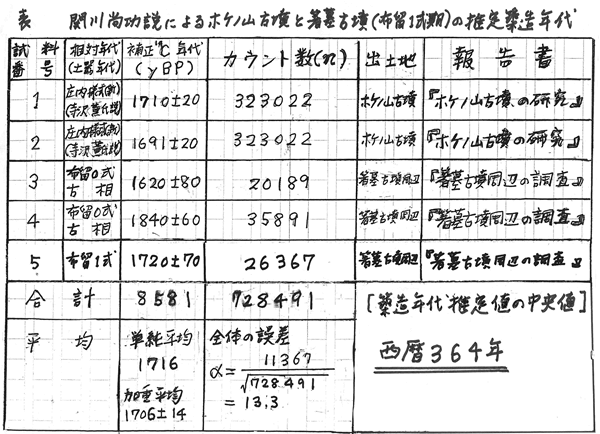 表 関川尚功説によるホケノ山古墳と箸墓古墳(布留1式期)の推定築造年代
試料番号 相対年代(土器年代) 補正¹⁴C年代(yBP) カウント数(n) 出土地 報告書
1 庄内様式(新)(寺沢薫氏説) 1710±20 323022 ホケノ山古墳 『ホケノ山古墳の研究』
2 庄内様式(新)(寺沢薫氏説) 1691±20 323022 ホケノ山古墳 『ホケノ山古墳の研究』
3 布留0式古相 1620±80 20189 箸墓古墳周辺 『箸墓古墳周辺の調査』
4 布留0式古相 1840±60 35891 箸墓古墳周辺 『箸墓古墳周辺の調査』
5 布留1式 1720±70 26367 箸墓古墳周辺 『箸墓古墳周辺の調査』
合計 8581 728491 [築造年代推定値の中央値]
西暦364年
平均 単純平均 全体の誤差
1716
α=11367/√728491
加重平均
1706±14
=13.3